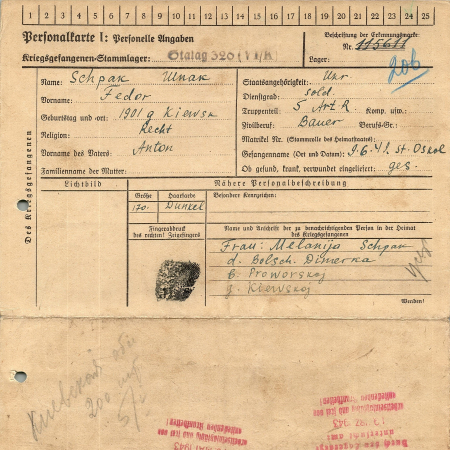 1 2 3 4 5 6 7 8 9 10 11 12 13 14 15 16 17 18 19 20 21 22 23 24 25
Personalkarte I: Personelle Angaben
Beschriftung der Erkennungsmarke
Nr. 115611
Kriegsgefangenen-Stammlager: Stalag 326 (VI/K)
Lager:
206
Des Kriegsgefangenen
Name: Schpak Ulnak
Vorname: Fedor
Geburtstag und -ort: 1901 g Kiewsk
Religion: Recht
Vorname des Vaters: Anton
Familienname der Mutter:
Staatsangehörigkeit: Ukr
Dienstgrad: sold.
Truppenteil: 5 Art. R Komp. usw.:
Zivilberuf: Bauer Berufs-Gr.:
Matrikel Nr. (Stammrolle des Heimatstaates):
Gefangennahme (Ort und Datum): 9.6.41. st. Oskol
Ob gesund, krank, verwundet eingeliefert: ges.
Lichtbild
Nähere Personalbeschreibung
Größe Haarfarbe Besondere Kennzeichen:
170. Dunkel
Fingerabdruck
des rechten! Zeigefingers
Name und Anschrift der zu benachrichtigenden Person in der Heimat
des Kriegsgefangenen
Frau: Melanija Schpak
d. Bolsch. Dimerka
Proworskoj
g. Kiewskoj
Wenden!
Киевской обл
200